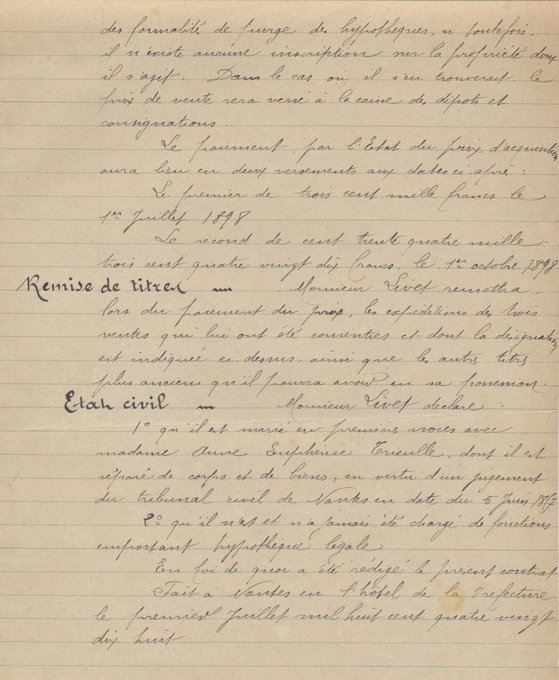 des formalités de purge des hypothèques, si toutefois,
il n'existe aucune inscription sur la propriété dont
il s'agit. Dans le cas où il s'en trouverait le
prix de vente sera versé à la caisse des dépots et
consignations.
Le paiement par l'Etat du prix d'acquisition
aura lieu en deux versements aux dates ci-après :
Le premier de trois cent mille francs le
1er Juillet 1898
Le second de cent trente quatre mille
trois cent quatre vingt dix francs, le 1er octobre 1898
Remise de titres — Monsieur Livet remettra,
lors du paiement du prix, les expéditions des trois
ventes qui lui ont été consenties et dont la désignation
est indiquée ci-dessus ainsi que les autres titres
plus anciens qu'il pourra avoir en sa possession
Etat civil — Monsieur Livet déclare :
1° qu'il est marié en premières noces avec
madame Anne Euphémie, dont il est
séparé de corps et de biens, en vertu d'un jugement
du tribunal civil de Nantes en date du 5 Juin
2° qu'il n'est et n'a jamais été chargé de fonctions
emportant hypothèque légale
En foi de quoi a été rédigé le présent contrat
Fait à Nantes en l'hôtel de la Préfecture
le premier Juillet mil huit cent quatre vingt
dix huit.